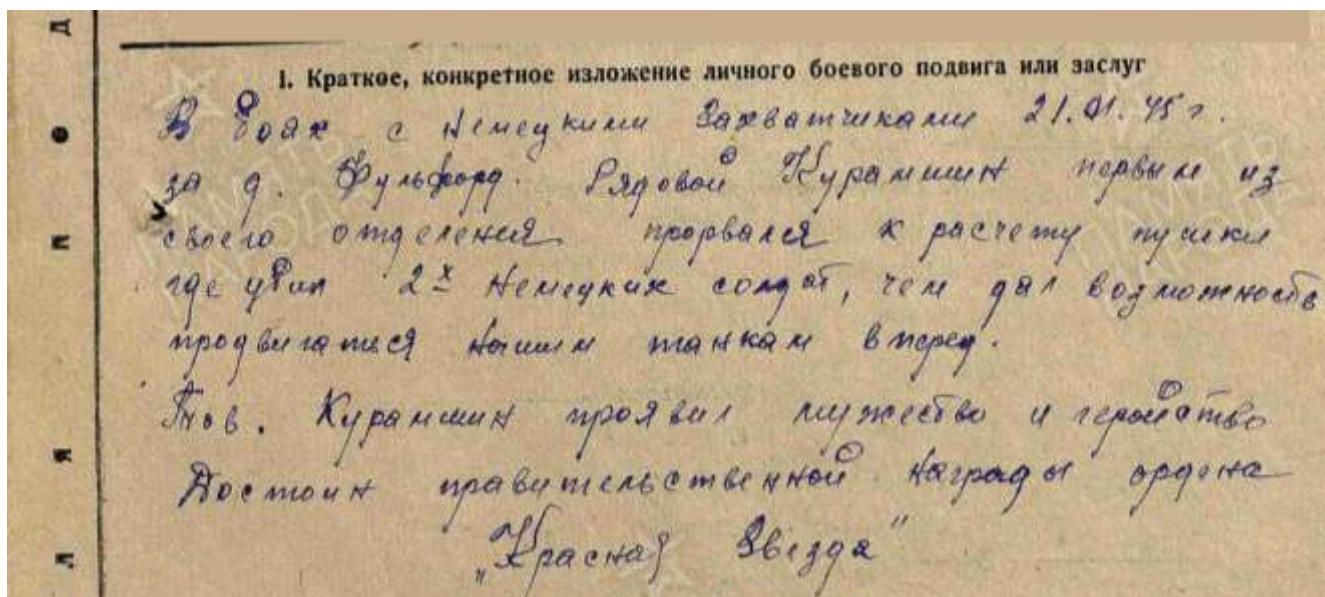 I. Краткое, конкретное изложение личного боевого подвига или заслуг
В боях с немецкими захватчиками 21.01.45 г.
за д. Фульфорд. Рядовой Курамшин первым из
своего отделения прорвался к расчету пушки
где убил 2х немецких солдат, чем дал возможность
продвигаться нашим танкам вперед.
Тов. Курамшин проявил мужество и геройство
Достоин правительственной награды ордена
„Красная Звезда"